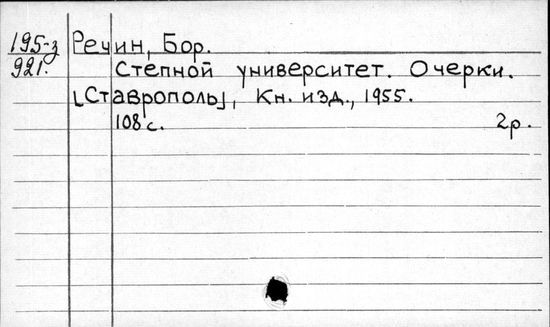 195-з Речин, Бор.
921. Степной университет. Очерки.
[Ставрополь], Кн. изд., 1955.
108 с. 2р.